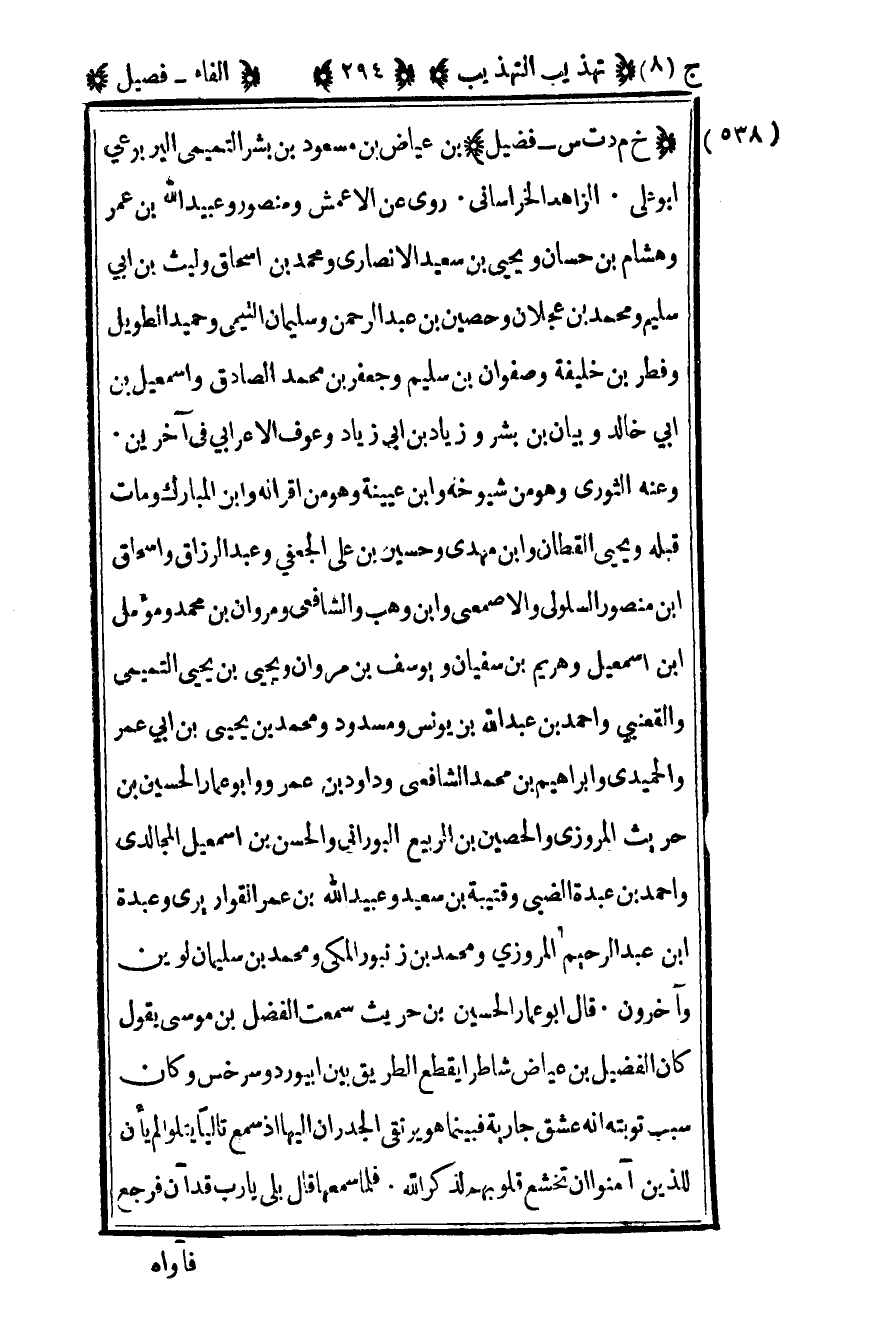 ج (٨) ﴿ تهذيب التهذيب ﴾ ﴿ ٢٩٤ ﴾ ﴿ الفاء ـ فضيل ﴾
(٥٣٨) ﴿ خ م د ت س ـ فضيل ﴾ بن عياض بن مسعود بن بشر التميمى اليربوعي
ابو علي ٠ الزاهد الخراسانى ٠ روى عن الاعمش ومنصور وعبيد الله بن عمر
وهشام بن حسان ويحيى بن سعيد الانصارى ومحمد بن اسحاق وليث بن ابي
سليم ومحمد بن عجلان وحصين بن عبد الرحمن وسليمان التيمى وحميد الطويل
وفطر بن خليفة وصفوان بن سليم وجعفر بن محمد الصادق واسمعيل بن
ابي خالد وبيان بن بشر وزياد بن ابي زياد وعوف الاعرابي فى آخرين ٠
وعنه الثورى وهو من شيوخه وابن عيينة وهو من اقرانه وابن المبارك ومات
قبله ويحيى القطان وابن مهدى وحسين بن على الجعفي وعبد الرزاق واسحاق
ابن منصور السلولى والاصمعى وابن وهب والشافعى ومروان بن محمد ومؤمل
ابن اسمعيل وهريم بن سفيان ويوسف بن مروان ويحيى بن يحيى التميمى
والقعنبي واحمد بن عبد الله بن يونس ومسدود ومحمد بن يحيى بن ابي عمر
والحميدى وابراهيم بن محمد الشافعى وداود بن عمر ووابو عمار الحسين بن
حريث المروزى والحصين بن الربيع البورانى والحسن بن اسمعيل المجالدى
واحمد بن عبدة الضبى وقتيبة بن سعيد وعبيد الله بن عمر القواريرى وعبدة
ابن عبد الرحيم المروزي ومحمد بن زنبور المكى ومحمد بن سليمان لوين
وآخرون ٠ قال ابو عمار الحسين بن حريث سمعت الفضل بن موسى يقول
كان الفضيل بن عياض شاطرا يقطع الطريق بين ابيورد وسرخس وكان
سبب توبته انه عشق جارية فبينما هو يرتقى الجدران اليها اذ سمع تالياً يتلو الم يأن
للذين آمنوا ان تخشع قلوبهم لذكر الله ٠ فلما سمعها قال بلى يارب قد آن فرجع
فآواه